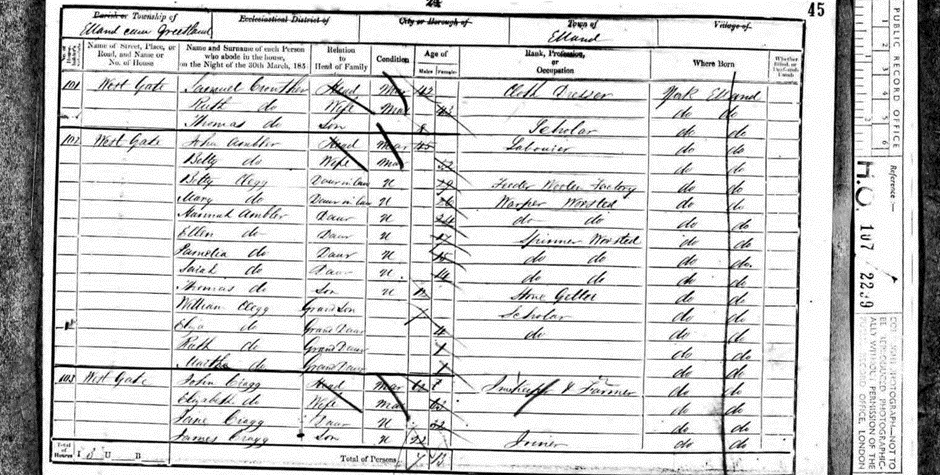 45
Parish or Township of Ecclesiastical District of City or Borough of Town of Village of
Elland cum Greetland Elland
Name of Street, Place, or Road, and Name or No. of House
Name and Surname of each Person who abode in the house, on the Night of the 30th March, 185
Relation to Head of Family
Condition
Age of
Males Females
Rank, Profession, or Occupation
Where Born
101 West Gate Samuel Crowther Head Mar 42 Cloth Dresser York Elland
Ruth do Wife Mar do do
Thomas do Son Scholar do do
102 West Gate John Ambler Head Mar Labourer do do
Betty do Wife Mar do do
Betty Clegg Daur in Law U Feeder Woolen Factory do do
Mary do Daur in Law U Warper Worsted do do
Hannah Ambler Daur U 24 do do do do
Ellen do Daur U Spinner Worsted do do
Pamelia do Daur U 15 do do do do
Sarah do Daur U 14 do do do do
Thomas do Son U do do
William Clegg Grand Son Scholar do do
Eliza do Grand Daur 4 do do do
Ruth do Grand Daur do do
Martha do Grand Daur do do
103 West Gate John Cragg Head Mar Innkeeper & Farmer do do
Elizabeth do Wife Mar do do
Jane Cragg Daur 22 do do
James Cragg Son 22 do do
Total of Houses I U B Total of Persons
PUBLIC RECORD OFFICE
Reference :-
H.O. 107 / 2299
COPYRIGHT PHOTOGRAPH—NOT TO BE REPRODUCED PHOTOGRAPHICALLY WITHOUT PERMISSION OF THE PUBLIC RECORD OFFICE, LONDON